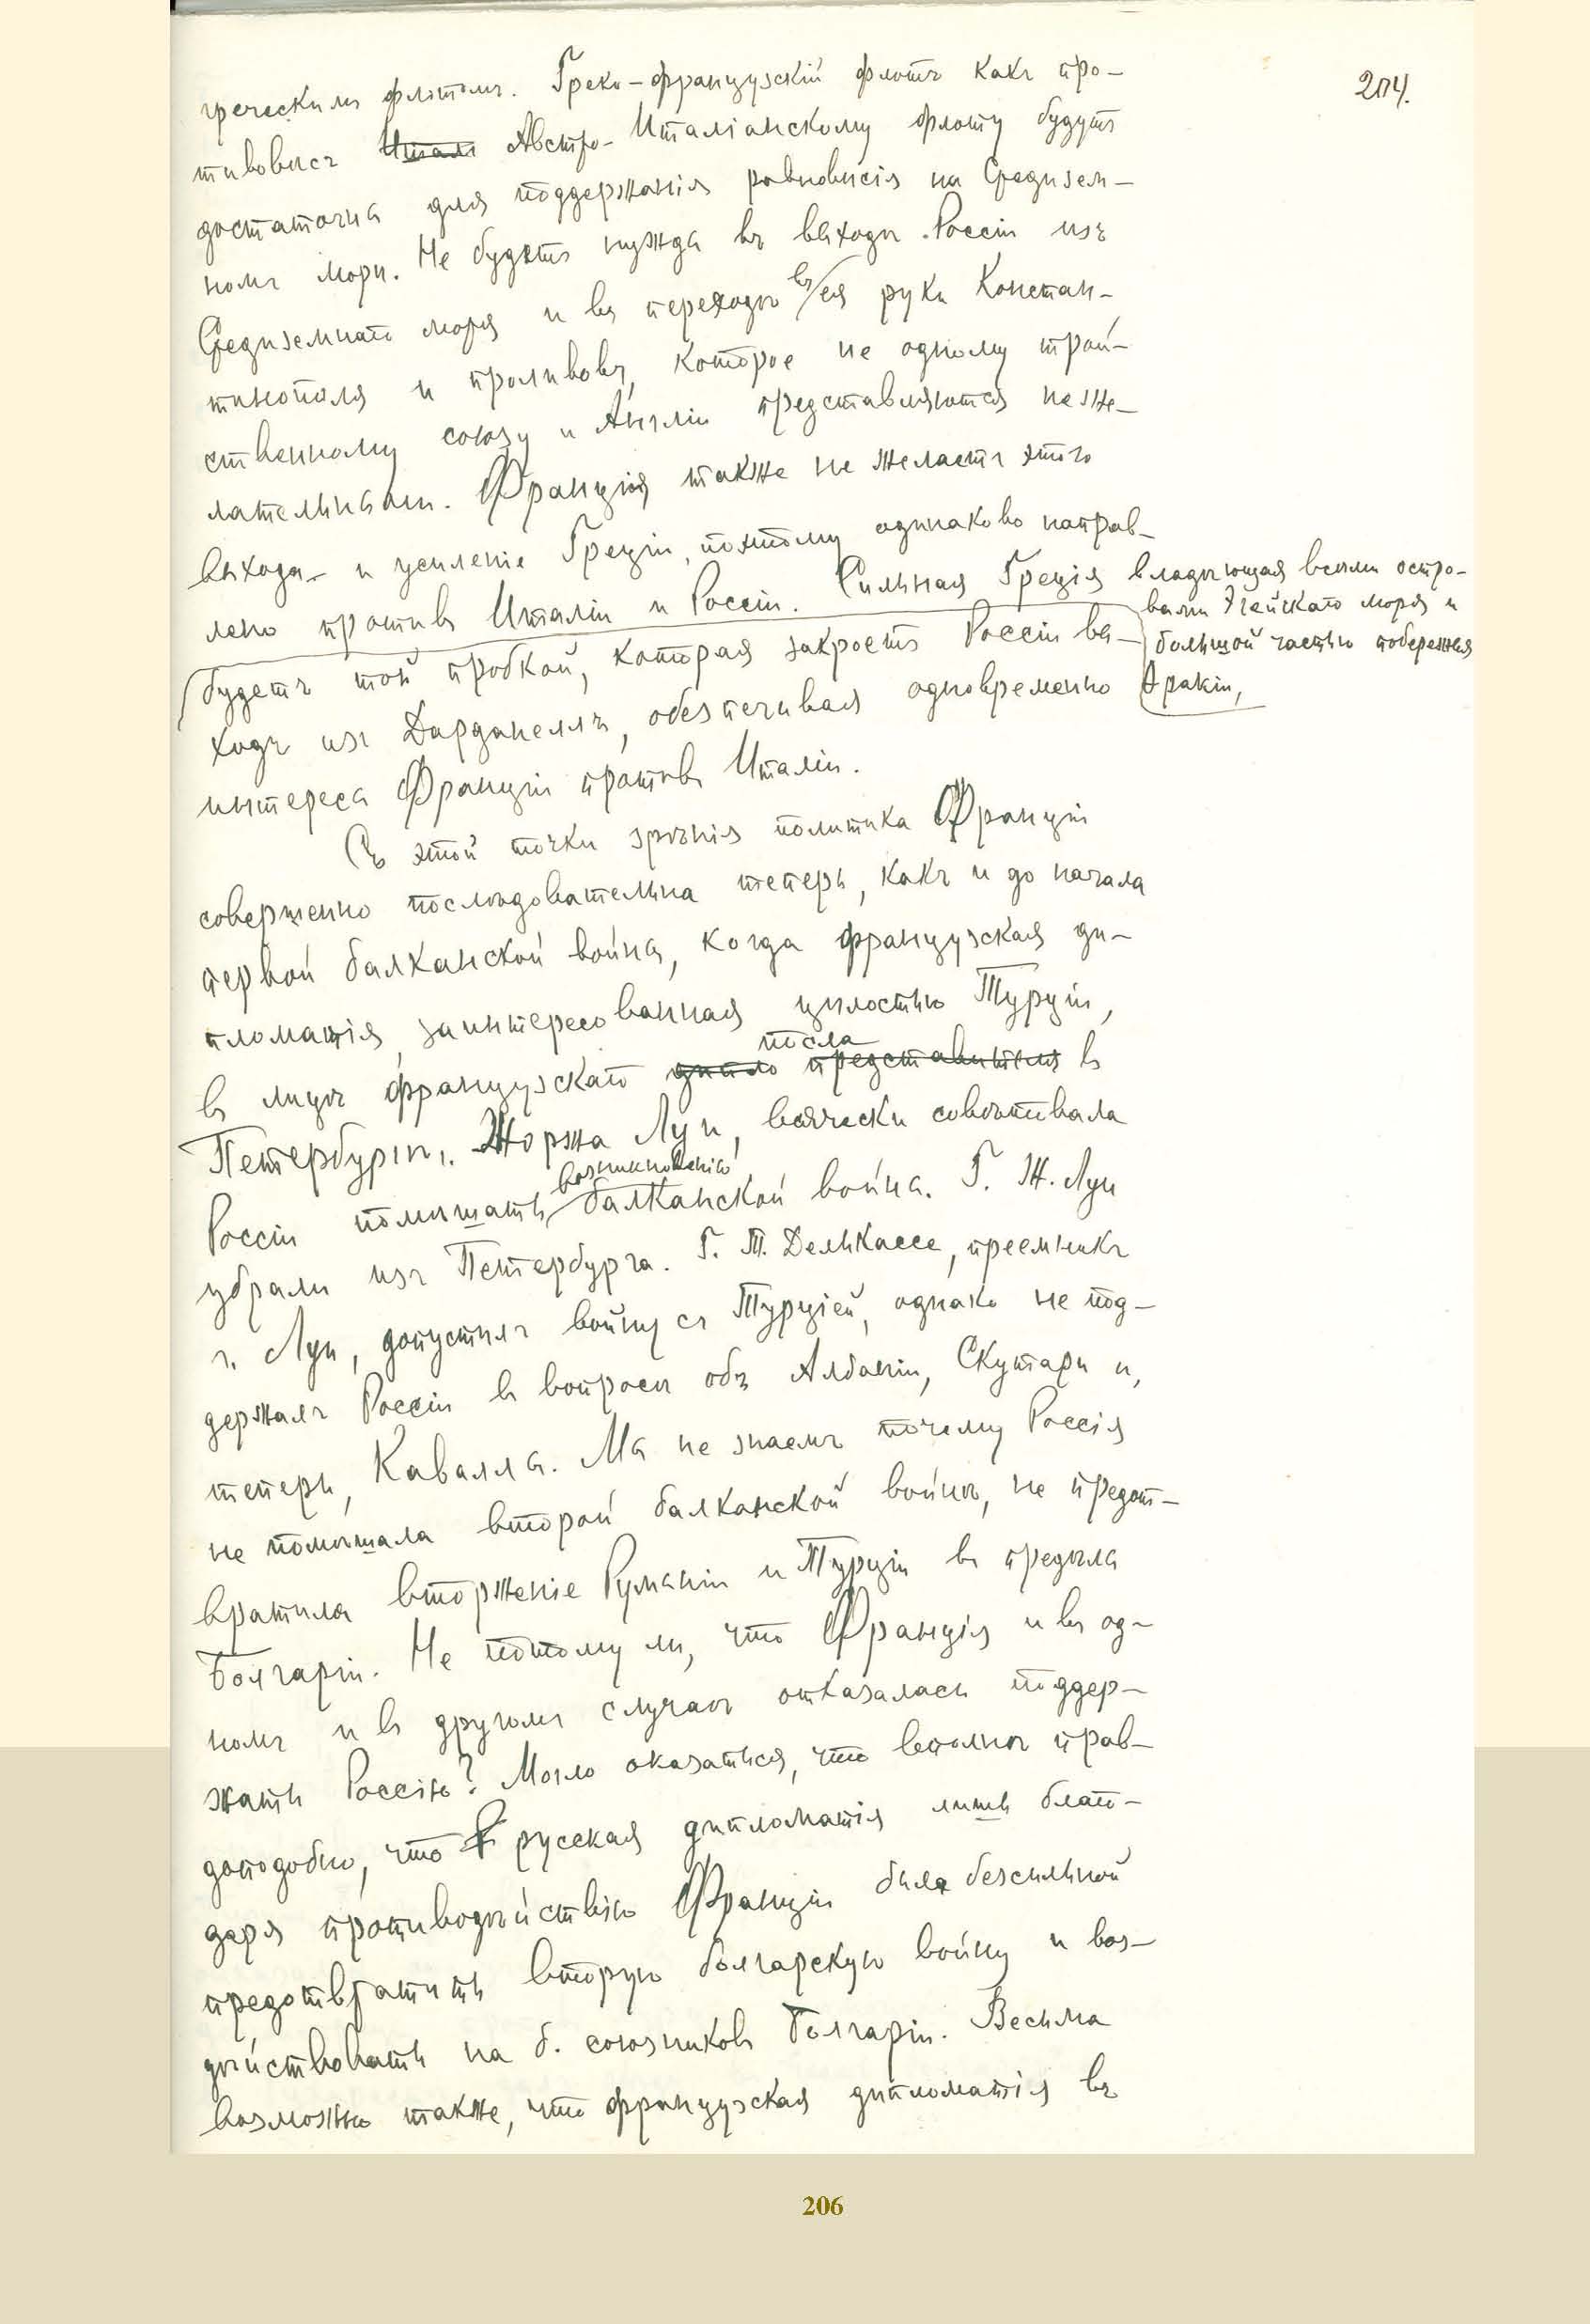 204.
греческимъ флотомъ. Греко-французскій флотъ какъ про-
тивовѣсъ Итал Австро-Италіанскому флоту будутъ
достаточны для поддержанія равновѣсія на Средизем-
номъ морѣ. Не будетъ нужды въ выходѣ Россіи изъ
Средиземнаго моря и въ переходѣ въ ея руки Констан-
тинополя и проливовъ, которое не одному трой-
ственному союзу и Англіи представляются неже-
лательными. Франція также не желаетъ этого
выхода и усиленіе Греціи, поэтому одинаково направ-
лено противъ Италіи и Россіи. Сильная Греція владѣющая всѣми остро-
вами Эгейскаго моря и
большой частью побережья
Ѳракіи,
будетъ той пробкой, которая закроетъ Россіи вы-
ходъ изъ Дарданеллъ, обезпечивая одновременно
интересы Франціи противъ Италіи.
Съ этой точки зрѣнія политика Франціи
совершенно послѣдовательна теперь, какъ и до начала
первой балканской войны, когда французская ди-
пломатія, заинтересованная цѣлостью Турціи,
въ лицѣ французскаго дипло представителя посла въ
Петербургѣ, Жоржа Луи, всячески совѣтывала
Россіи помѣшать возникновенію балканской войны. Г. Ж. Луи
убрали изъ Петербурга. Г. Т. Делькассе, преемникъ
г. Луи, допустилъ войну съ Турціей, однако не под-
держалъ Россіи въ вопросѣ объ Албаніи, Скутари и,
теперь, Каваллы. Мы не знаемъ почему Россія
не помѣшала второй балканской войнѣ, не предот-
вратила вторженіе Румыніи и Турціи въ предѣлы
Болгаріи. Не потому ли, что Франція и въ од-
номъ и въ другомъ случаѣ отказалась поддер-
жать Россію? Могло оказаться, что вполнѣ прав-
доподобно, что русская дипломатія лишь благо-
даря противодѣйствію Франціи была безсильной
предотвратить вторую болгарскую войну и воз-
дѣйствовать на б. союзниковъ Болгаріи. Весьма
возможно также, что французская дипломатія въ
206